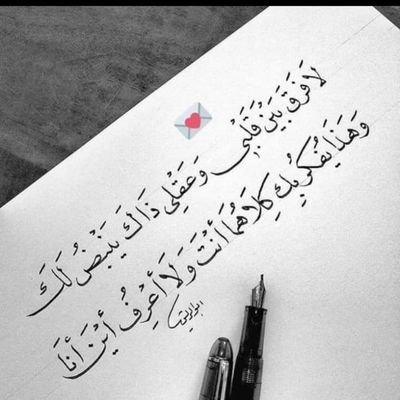 لَا فَرَقَ بَيَنُ قَلَبْي وَعَقْلِي ذَاكَ يَنْبَضُ لَكَ
وَهَذَا يُفَكِرُ بِكِ كِلَاهُمَا أَنْتَ وَلَا أَعرِفُ أَيْنَ أَنَا